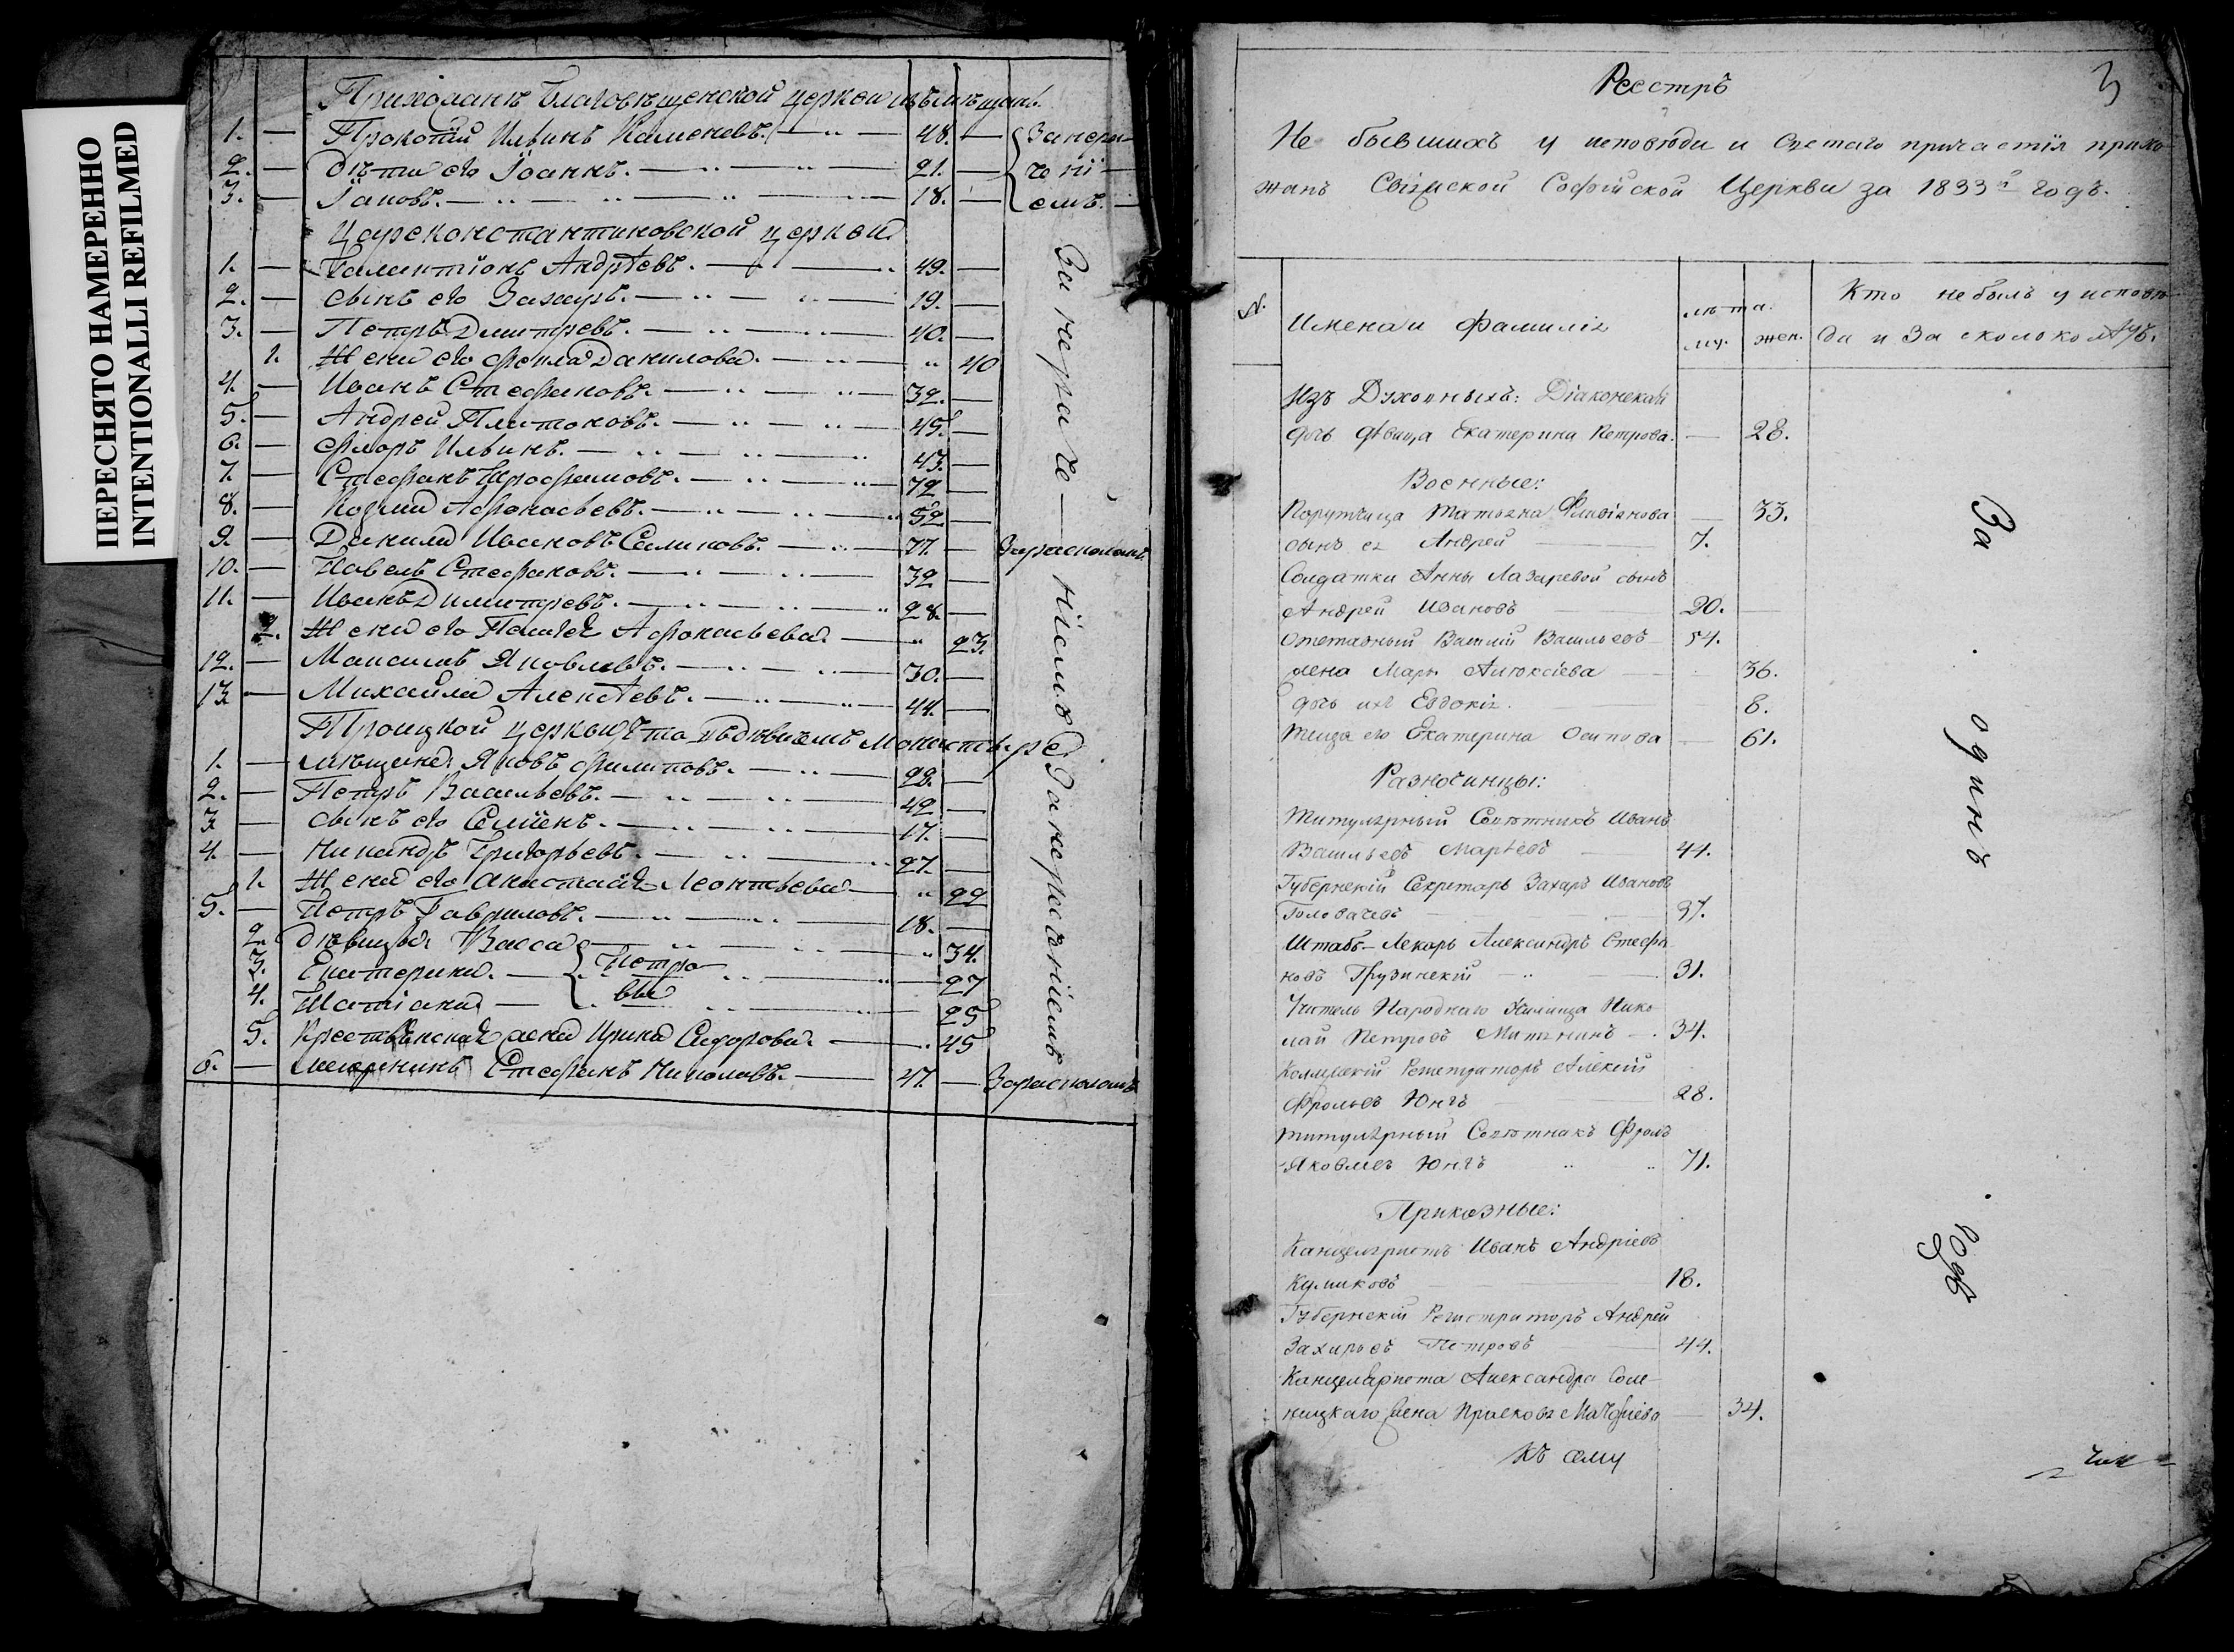 ПЕРЕСНЯТО НАМЕРЕННО
INTENTIONALLI REFILMED
Прихожанъ Благовѣщенской церкви изъ мѣщанъ
1. — Прокопій Ильинъ Каменевъ. 48. — Занера-
2. — дѣти его Іоаннъ. 21. — чені-
3. — Іаковъ. 18. — емъ.
Цареконстантиновской церкви
1. — Галактіонъ Андрѣевъ. 49. —
2. — сынъ его Захаръ. 19. —
3. — Петръ Дмитревъ. 40. —
1. Жена его Фекла Данилова. 40
4. — Иванъ Стефановъ. 32. —
5. — Андрей Платоновъ. 45. —
6. — Флоръ Ильинъ. 43. —
7. — Стефанъ Трофимовъ. 72 —
8. — Козма Афонасьевъ. 52 —
9. — Данила Ивановъ Салиновъ. 77. — За расколомъ
10. — Павелъ Стефановъ. 32 —
11. — Иванъ Димитревъ. 28. —
2. Жена его Афонасьева. 23.
12. — Максимъ Яковлевъ. 30. —
13 — Михайла Алексѣевъ. 44. —
За нераче — ніемъ
Троицкой церкви что въ дѣвичемъ Монастырѣ
1. — мѣщанъ Яковъ Филиповъ. 22. —
2. — Петръ Васильевъ. 42 —
3 — сынъ его Семіенъ. 17. —
4. — Никандръ Григорьевъ. 27. —
1. Жена его Анастасія Леонтьева 22
5. — Петръ Гавриловъ. 18. —
2. дѣвицы Васса 34.
3. Екатерина. Петро 27
4. Татіана вы 25
5. Крестьянская жена Ирина Сидорова. 45
6. — Стефанъ Николаевъ. 47. — За расколомъ
За нераченіемъ
Реестръ
3
Не бывшихъ у исповѣди и Святаго причастія прихо-
жанъ Свіяжской Софійской Церкви за 1833й годъ.
№. Имена и фамилія лѣта. Кто не былъ у исповѣ-
му. жен. ди и За сколько лѣтъ.
Изъ Духовныхъ: Діаконская
дочь дѣвица Екатерина Петрова. — 28.
Военные:
Порутчица Татьяна Фливіянова — 33.
сынъ ея Андрей 7.
Солдатки Анны Лазаревой сынъ
Андрей Ивановъ 20.
Отставный Василій Васильевъ 54.
жена Марья Алексіева 36.
дочь ихъ Евдокія. 8.
Теща его Екатерина Осипова — 61.
Разночинцы:
Титулярный Совѣтникъ Иванъ
Васильевъ 44.
Губернскій Секретарь Захаръ Ивановъ
Головачевъ 37.
Штабъ-Лекарь Александръ Стефа
новъ Грузинскій 31.
Учитель Народнаго Училища Нико
лай Петровъ Митянинъ 34.
Коллежскій Регистраторъ Алексій
Фроловъ Юнгъ 28.
Титулярный Совѣтникъ Фролъ
Яковлевъ Юнгъ 71.
Приказные:
Канцеляристъ Иванъ Андріевъ
Куликовъ 18.
Губернскій Регистраторъ Андрей
Захарьевъ Петровъ 44.
Канцеляриста Александра
жена Матфіева — 34.
За одинъ годъ
Къ сему